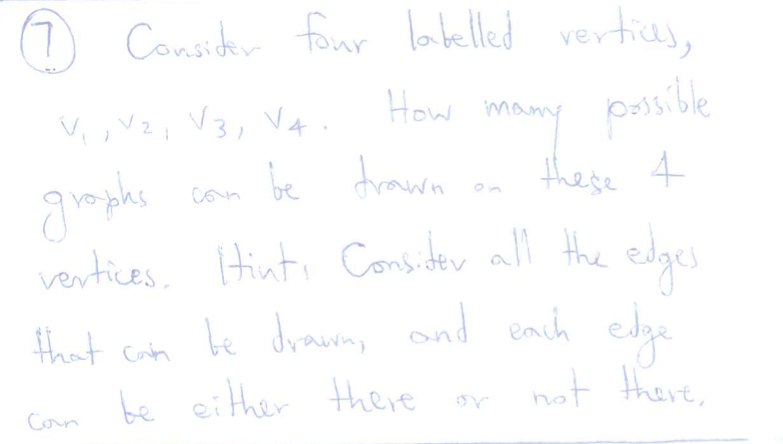 7 Consider four labelled vertices,
V1, V2, V3, V4. How many possible
graphs can be drawn on these 4
vertices. Hint: Consider all the edges
that can be drawn, and each edge
can be either there or not there.